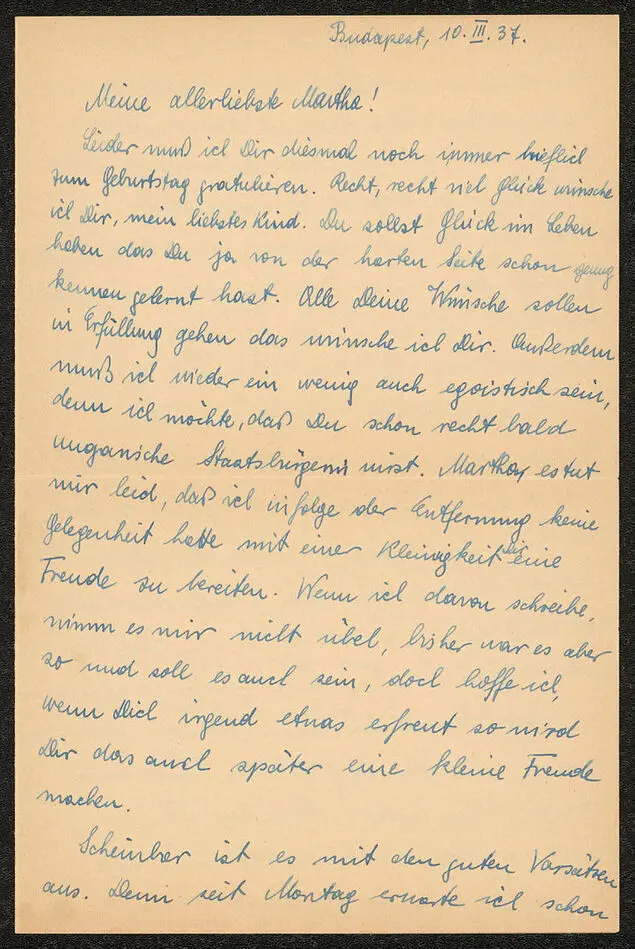 Budapest, 10. III. 37.
Meine allerliebste Martha!
Leider muß ich Dir diesmal noch immer brieflich
zum Geburtstag gratulieren. Recht, recht viel Glück wünsche
ich Dir, mein liebstes Kind. Du sollst Glück im Leben
haben das Du ja von der harten Seite schon genug
kennen gelernt hast. Alle Deine Wünsche sollen
in Erfüllung gehen das wünsche ich Dir. Außerdem
muß ich wieder ein wenig auch egoistisch sein,
denn ich möchte, daß Du schon recht bald
ungarische Staatsbürgerin wirst. Marthay es tut
mir leid, daß ich infolge der Entfernung keine
Gelegenheit hatte mit einer Kleinigkeit Dir eine
Freude zu bereiten. Wenn ich davon schreibe,
nimm es mir nicht übel, bisher war es aber
so und soll es auch sein, doch hoffe ich,
wenn Dich irgend etwas erfreut so wird
Dir das auch später eine kleine Freude
machen.
Scheinbar ist es mit den guten Vorsätzen
aus. Denn seit Montag erwarte ich schon